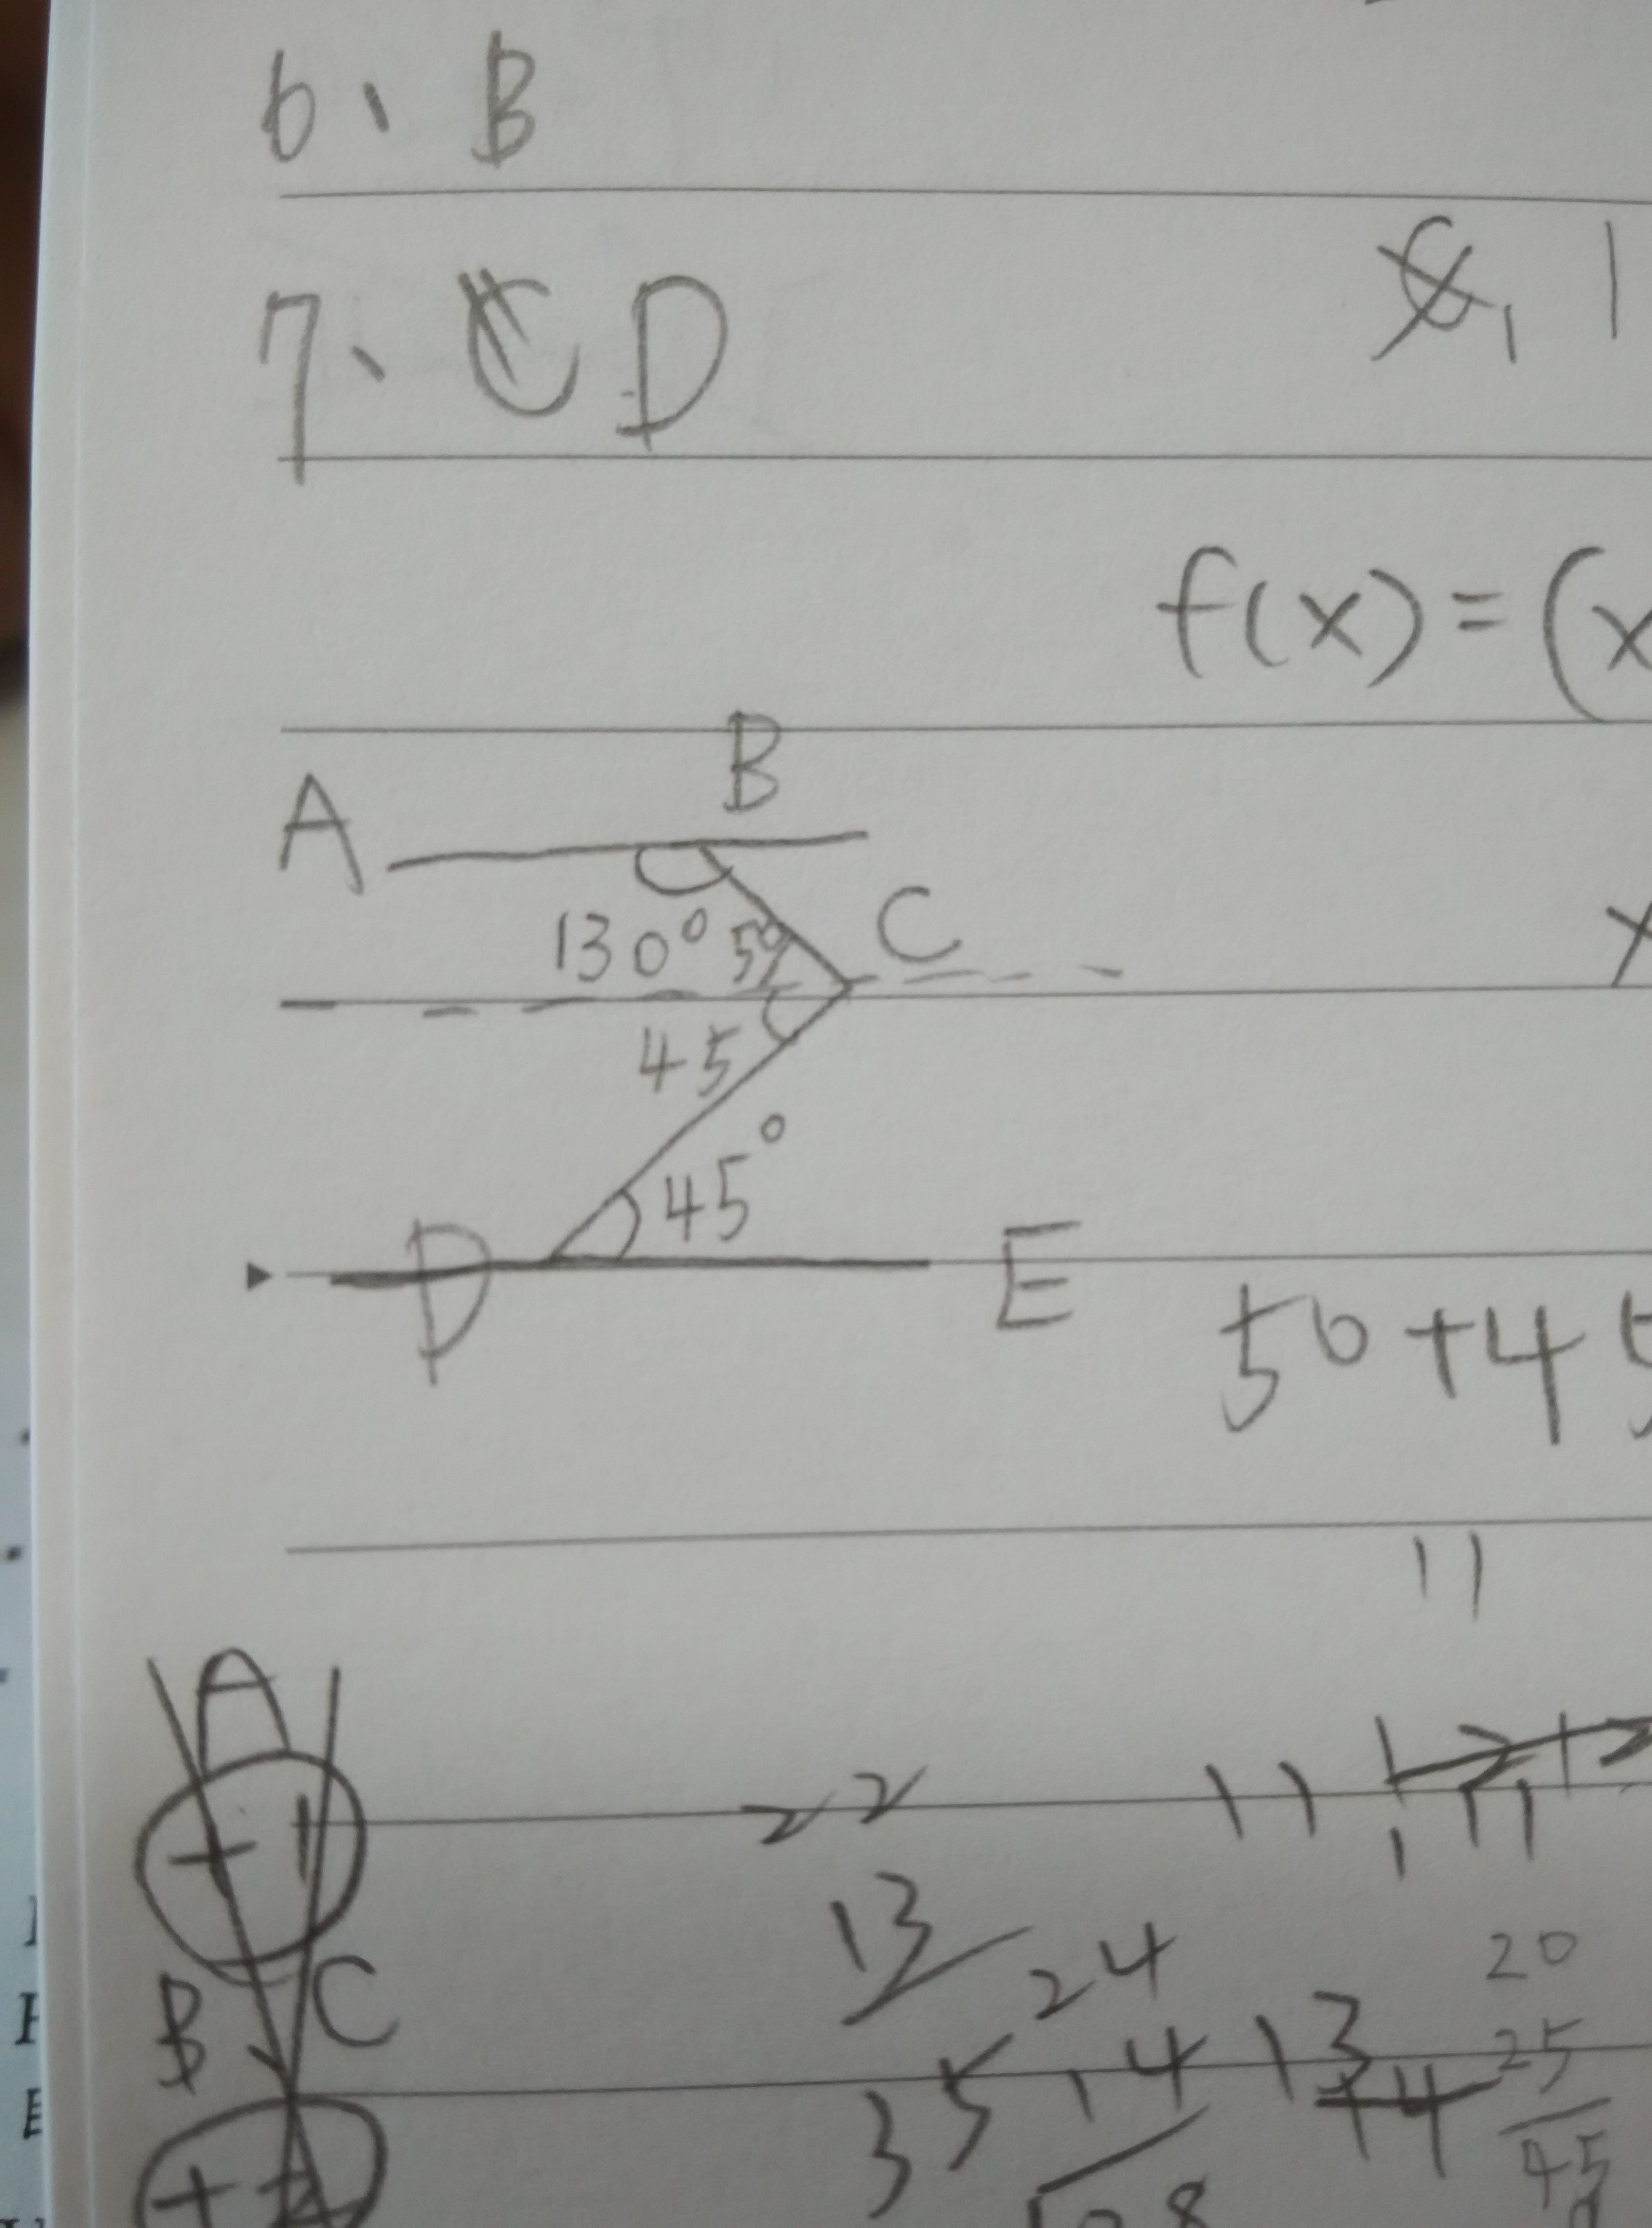 6、 B
7、 D
f(x)=(x
B
A
C
130° 50
x
45
45°
D E
50+45
11
A
+1
22 11,
13
B C
24 20
35 14 13 25
+4
45
+2